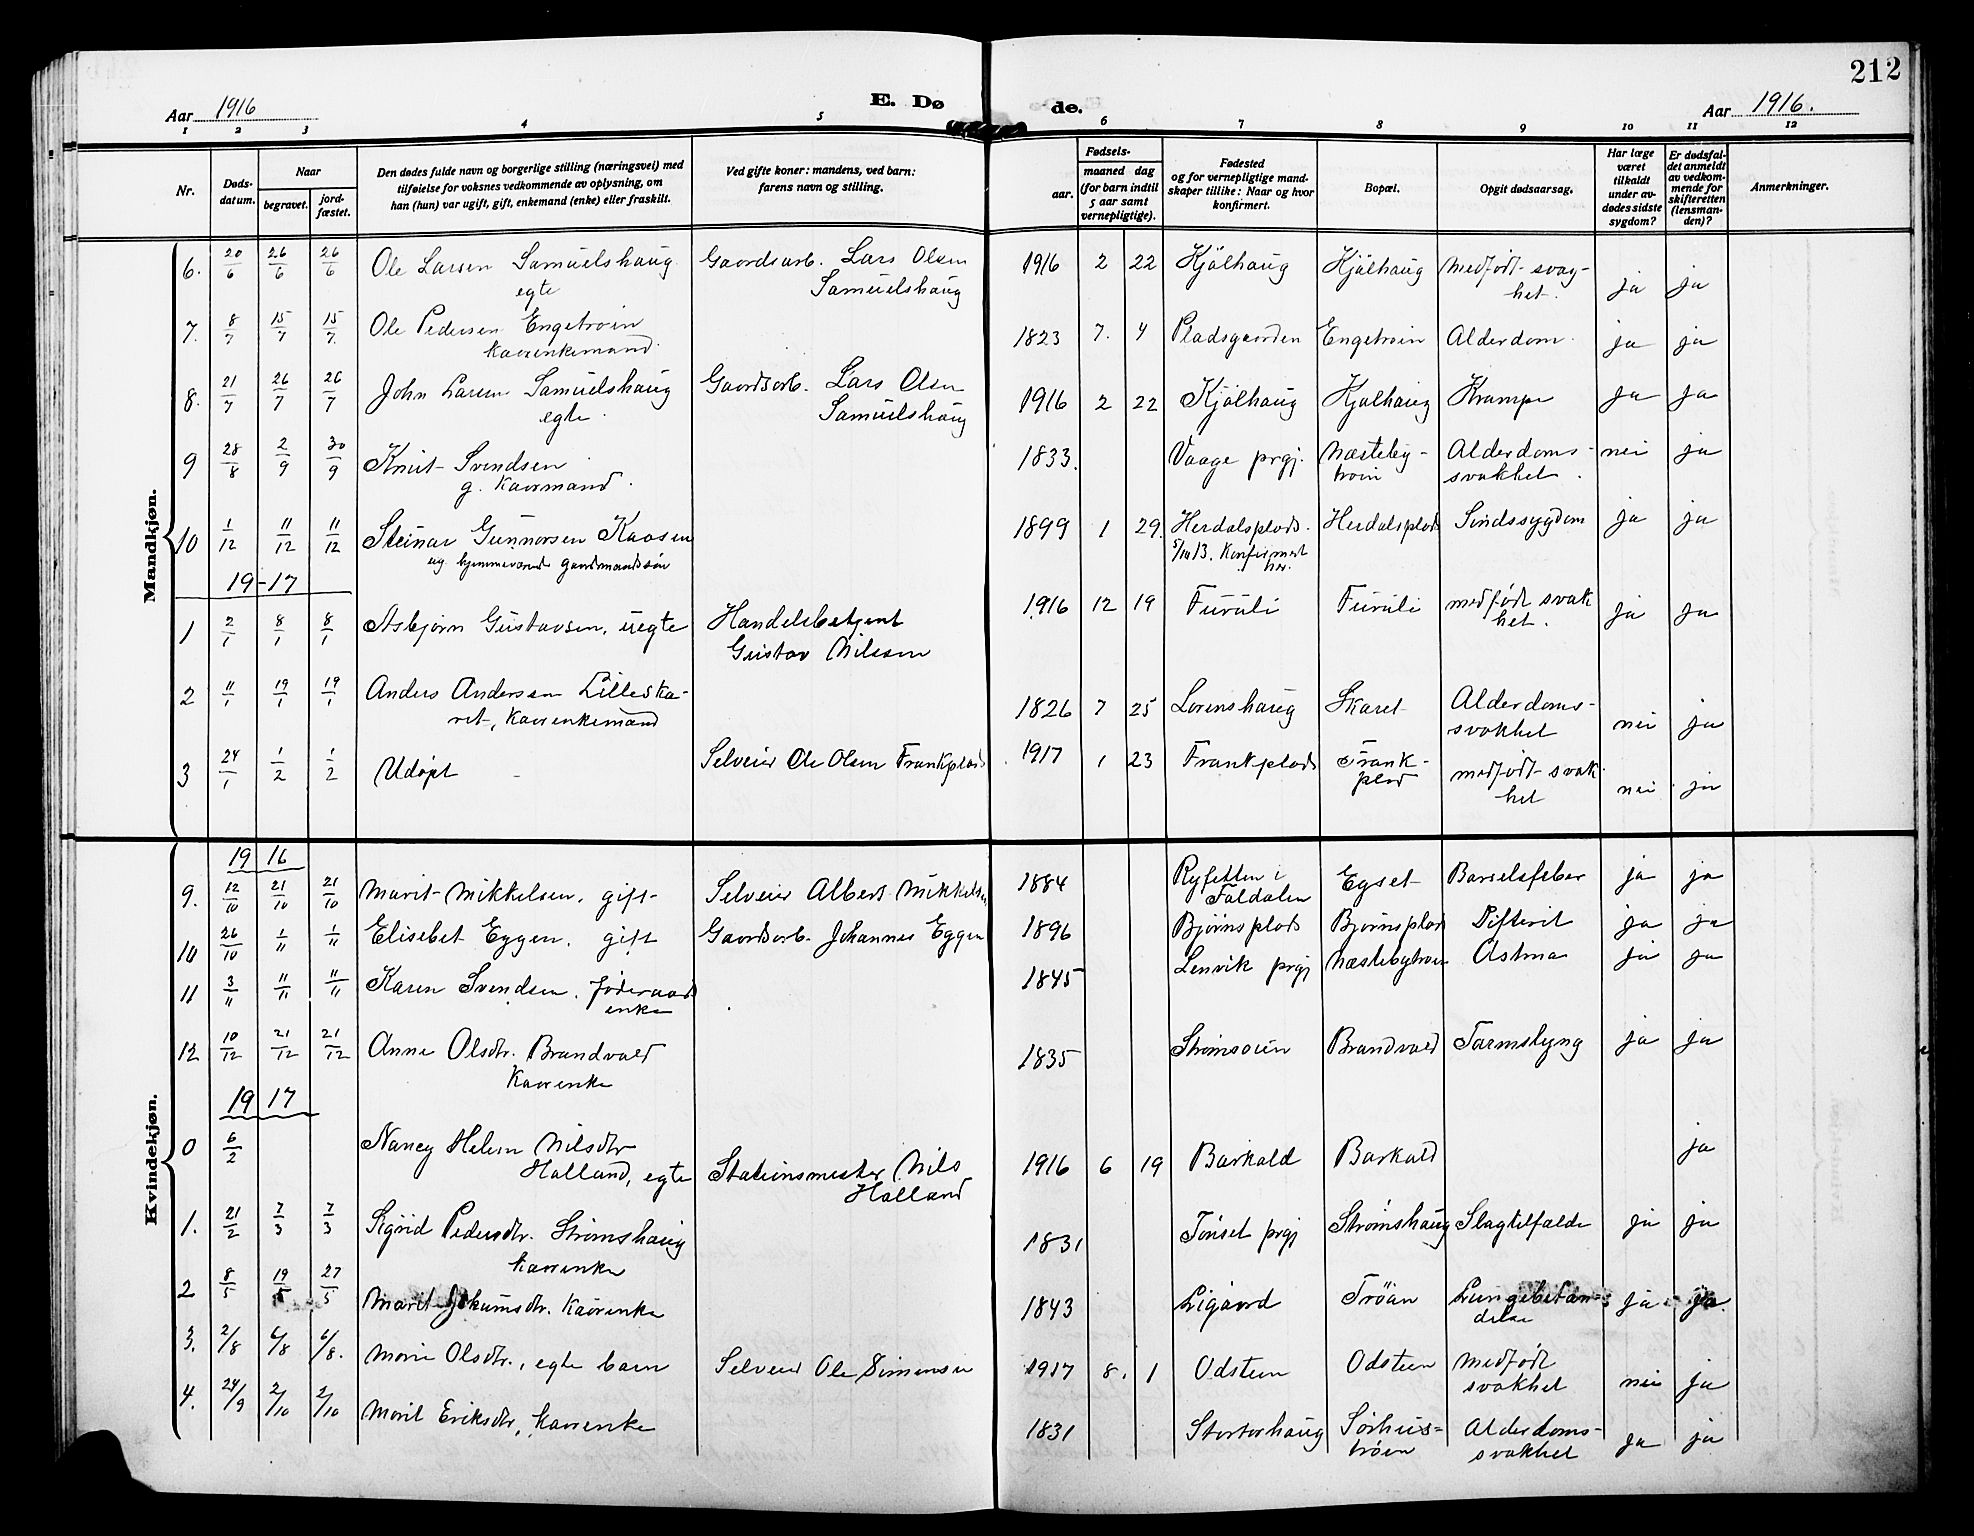 212
Aar 1916 E. Dø de. Aar 1916.
1 2 3 4 5 6 7 8 9 10 11 12
Nr. Døds-datum. Naar begravet. jord-fæstet. Den dødes fulde navn og borgerlige stilling (næringsvei) med tilføielse for voksnes vedkommende av oplysning, om han (hun) var ugift, gift, enkemand (enke) eller fraskilt. Ved gifte koner: mandens, ved barn: farens navn og stilling. Fødsels- aar. maaned dag (for barn indtil 5 aar samt vernepligtige). Fødested og for vernepligtige mandskaper tillike: Naar og hvor konfirmert. Bopæl. Opgit dødsaarsag. Har læge været tilkaldt under avdødes sidste sygdom? Er dødsfaldet anmeldt av vedkommende for skifteretten (lensmanden)? Anmerkninger.
Mandkjøn.
6. 20/6 26/6 26/6 Ole Larsen Samuelshaug Gaardsarb. Lars Olsen 1916 2 22 Kjølhaug Kjølhaug medfødt svag-
egte Samuelshaug het. ja ja
7. 8/7 15/7 15/7 Ole Pedersen Engetrøin 1823 7. 4 Pladsgaarden Engetrøin Alderdom. ja ja
Kaarenkemand.
8. 21/7 26/7 26/7 John Larsen Samuelshaug Gaardsarb. Lars Olsen 1916 2 22 Kjølhaug Kjølhaug Krampe ja ja
egte. Samuelshaug
9 28/8 2/9 30/9 Knut Svendsen 1833. Vaage prgj. Næsteby- Alderdoms- nei ja
g. Kaarmand. trøin svakhet.
10 1/12 11/12 11/12 Steinar Gunnarsen Kaasen 1899 1 29. Herdalsplads. Herdalsplads Sindssygdom ja ja
ug. hjemmeværende gaardmandssøn 5/10 13. Konfirmert her.
19-17
1 2/1 8/1 8/1 Asbjørn Gustavsen, uegte Handelsbetjent 1916 12 19 Furuli Furuli medfødt svak
Gustav Nilsen het. ja ja
2 11/1 19/1 19/1 Anders Andersen Lilleska- 1826 7 25 Lorenshaug Skaret Alderdoms-
ret, Kaarenkemand svakhet nei ja
3 24/1 1/2 1/2 Udøpt Selveier Ole Olsen Frankplads 1917 1 23 Frankplads Frank- medfødt svak
plad het nei ja
Kvindekjøn.
19 16
9. 12/10 21/10 21/10 Marit Mikkelsen, gift Selveier Albert Mikkelsen 1884 Ryfetten i Egset Barselsfeber ja ja
Foldalen
10 26/10 1/11 1/11 Elisebet Eggen, gift Gaardsarb. Johannes Eggen 1896 Bjørnsplads Bjørnsplads Difterit ja ja
11 3/11 11/11 11/11 Karen Svendsen, føderaads 1845 Lenvik prgj Næstebytrøen Astma ja ja
enke
12 10/12 21/12 21/12 Anne Olsdtr. Brandvold 1835 Strømsøien Brandvold Tarmslyng ja ja
Kaarenke
19 17
0 6/2 Nancy Helen Nilsdtr
Halland, egte Stationsmester Nils 1916 6 19 Barkald Barkald ja
Halland
1. 21/2 7/3 7/3 Sigrid Pedersdtr. Strømshaug 1831 Tønset prgj Strømshaug Slagtilfælde ja ja
Kaarenke
2 8/5 19/5 27/5 Marit Jokumsdtr. Kaarenke 1843 Ligaard Trøan Lungebetæn- ja ja.
delse
3. 2/8 6/8 6/8. Marie Olsdtr., egte barn Selveier Ole Simensen 1917 8. 1 Odsteen Odsteen medfødt
svakhet nei ja
4. 24/9 2/10 2/10 Marit Eriksdtr, Kaarenke 1831 Stortorhaug Sørhus- Alderdoms-
trøen svakhet ja ja